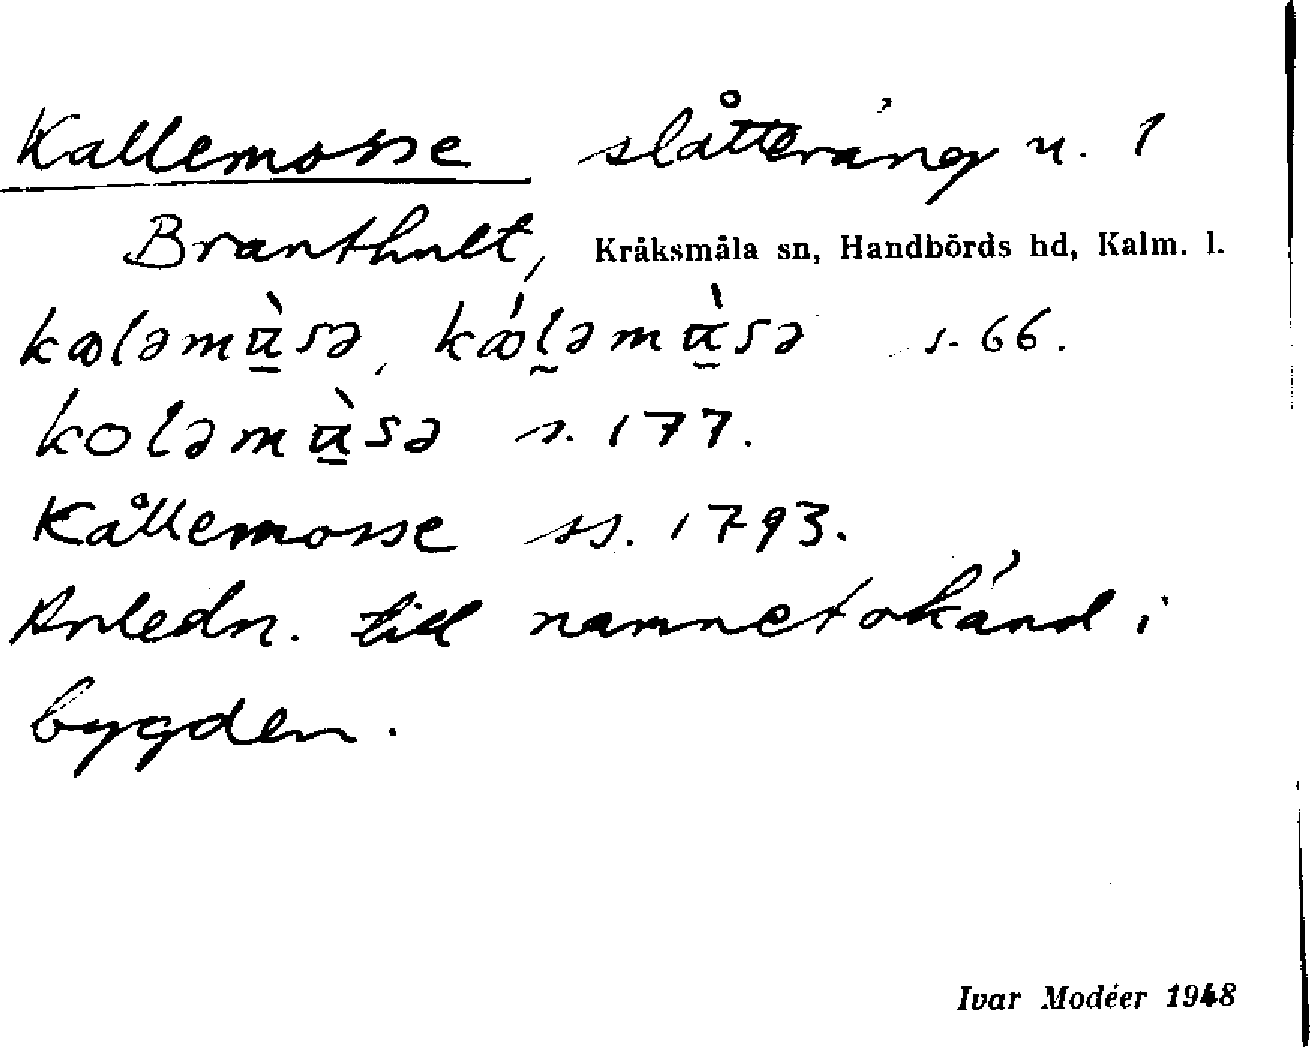 Kallemosse slåtteräng u. 1
Branthult, Kråksmåla sn, Handbörds hd, Kalm. l.
kaləmùsə, káləmùsə s. 66.
koləmùsə s. 177.
Kållemosse ss. 1793.
Anledn. till namnet okänd i
bygden.
Ivar Modéer 1948